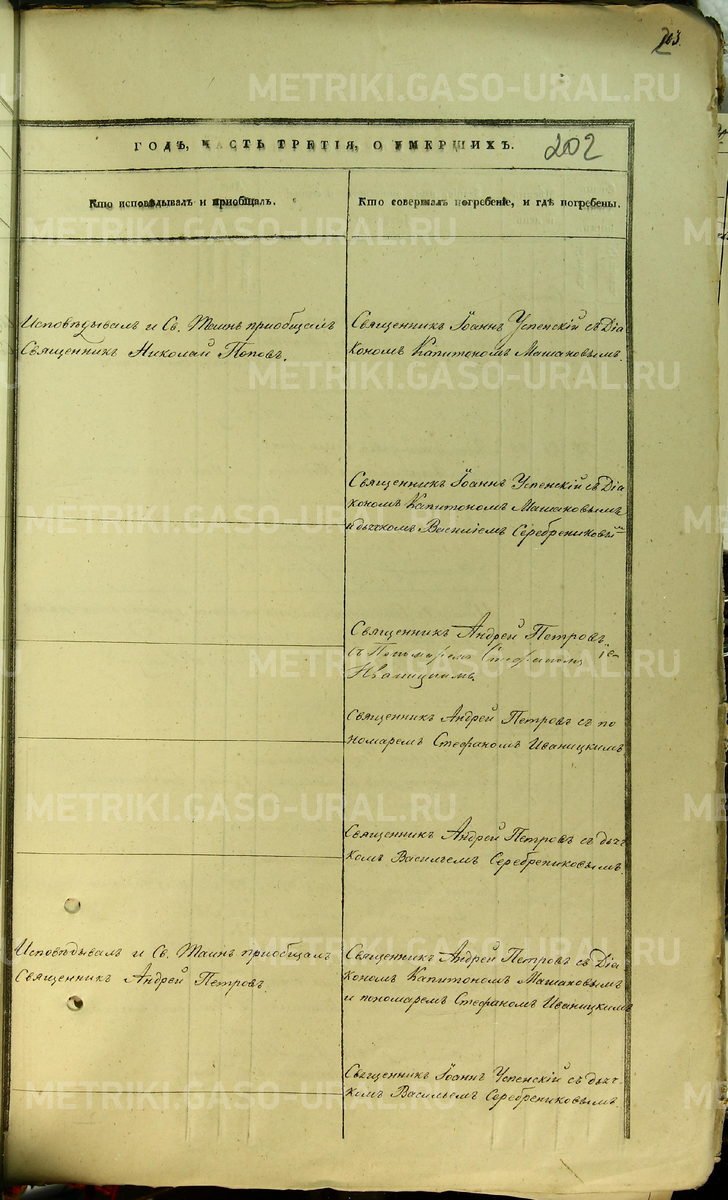 203.
ГОДЪ, ЧАСТЬ ТРЕТІЯ, О УМЕРШИХЪ.
202
Кто исповѣдывалъ и приобщалъ.
Кто совершалъ погребеніе, и гдѣ погребены.
Исповѣдывалъ и Св. Таинъ приобщалъ
Священникъ Николай Поповъ.
Священникъ Іоаннъ Успенскій съ Діа
кономъ Капитономъ Машановымъ.
Священникъ Іоаннъ Успенскій съ Діа
кономъ Капитономъ Машановымъ
и дьячкомъ Василіемъ Серебрениковым
Священникъ Андрей Петровъ
съ Пономаремъ Стефаномъ
Иваницкимъ
Священникъ Андрей Петровъ съ по
номаремъ Стефаномъ Иваницкимъ
Священникъ Андрей Петровъ съ дьяч
комъ Васильемъ Серебрениковымъ.
Исповѣдывалъ и Св. Таинъ приобщалъ
Священникъ Андрей Петровъ.
Священникъ Андрей Петровъ съ Діа
кономъ Капитономъ Машановымъ
и пономаремъ Стефаномъ Иваницкимъ
Священникъ Іоаннъ Успенскій съ дьяч-
комъ Васильемъ Серебрениковымъ.
METRIKI.GASO-URAL.RU